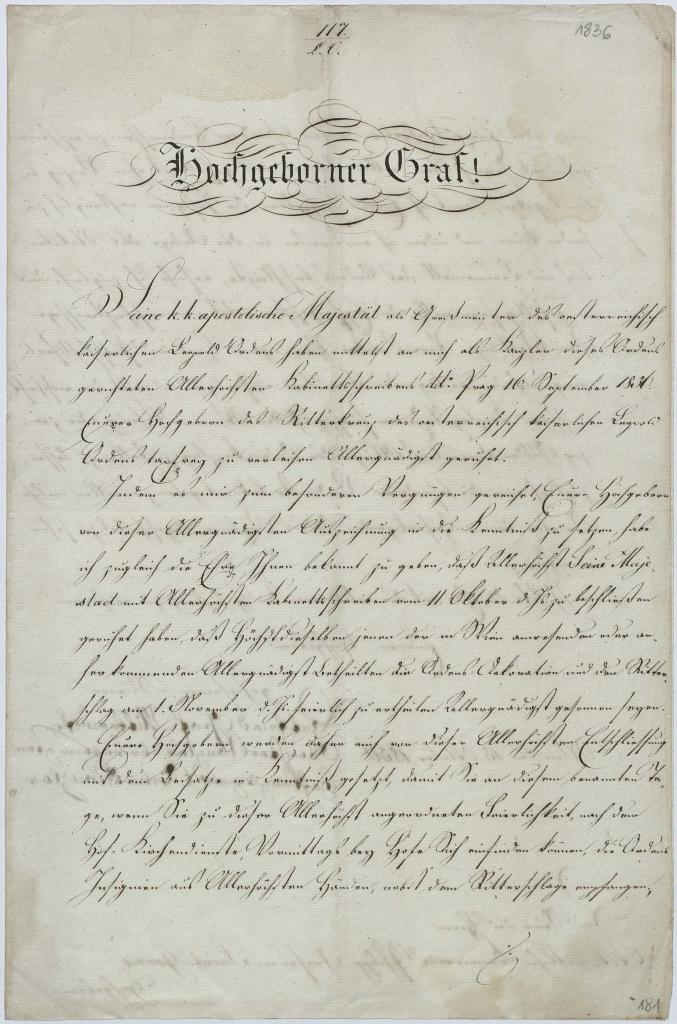 117.
L. O.
1836
Hochgeborner Graf!
Seine k. k. apostolische Majestät als Großmeister des oesterreichisch
kaiserlichen Leopold Ordens haben mittelst an mich als Kanzler dieses Ordens
gerichteten Allerhöchsten Kabinettsschreibens ddo Prag 16. September 1836.
Euerer Hochgeborn das Ritterkreuz des oesterreichisch kaiserlichen Leopold
Ordens taxfrey zu verleihen Allergnädigst geruhet.
Indem es mir zum besonderen Vergnügen gereichet, Euere Hochgeborn
von dieser Allergnädigsten Auszeichnung in die Kenntniß zu setzen, habe
ich zugleich die Ehre Ihnen bekannt zu geben, daß Allerhöchst Seine Maje-
staet mit Allerhöchsten Kabinettsschreiben vom 11. Oktober d. Js. zu beschließen
geruhet haben, daß Höchstdieselben jenen der in Wien anwesenden oder an-
her kommenden Allergnädigst Betheilten die Ordens Dekoration und den Ritter-
schlag am 1. November d. Js. feierlich zu ertheilen Allergnädigst gesonnen seyen.
Euere Hochgeborn werden daher auch von dieser Allerhöchsten Entschließung
mit dem Beisatze in Kenntniß gesetzt, damit Sie an diesem benannten Ta-
ge, wenn Sie zu dieser Allerhöchst angeordneten Feierlichkeit, nach dem
Hof-Kirchendienste, Vormittags bey Hofe Sich einfinden können, die Ordens
Insignien aus Allerhöchsten Händen, nebst dem Ritterschlage empfangen,
181